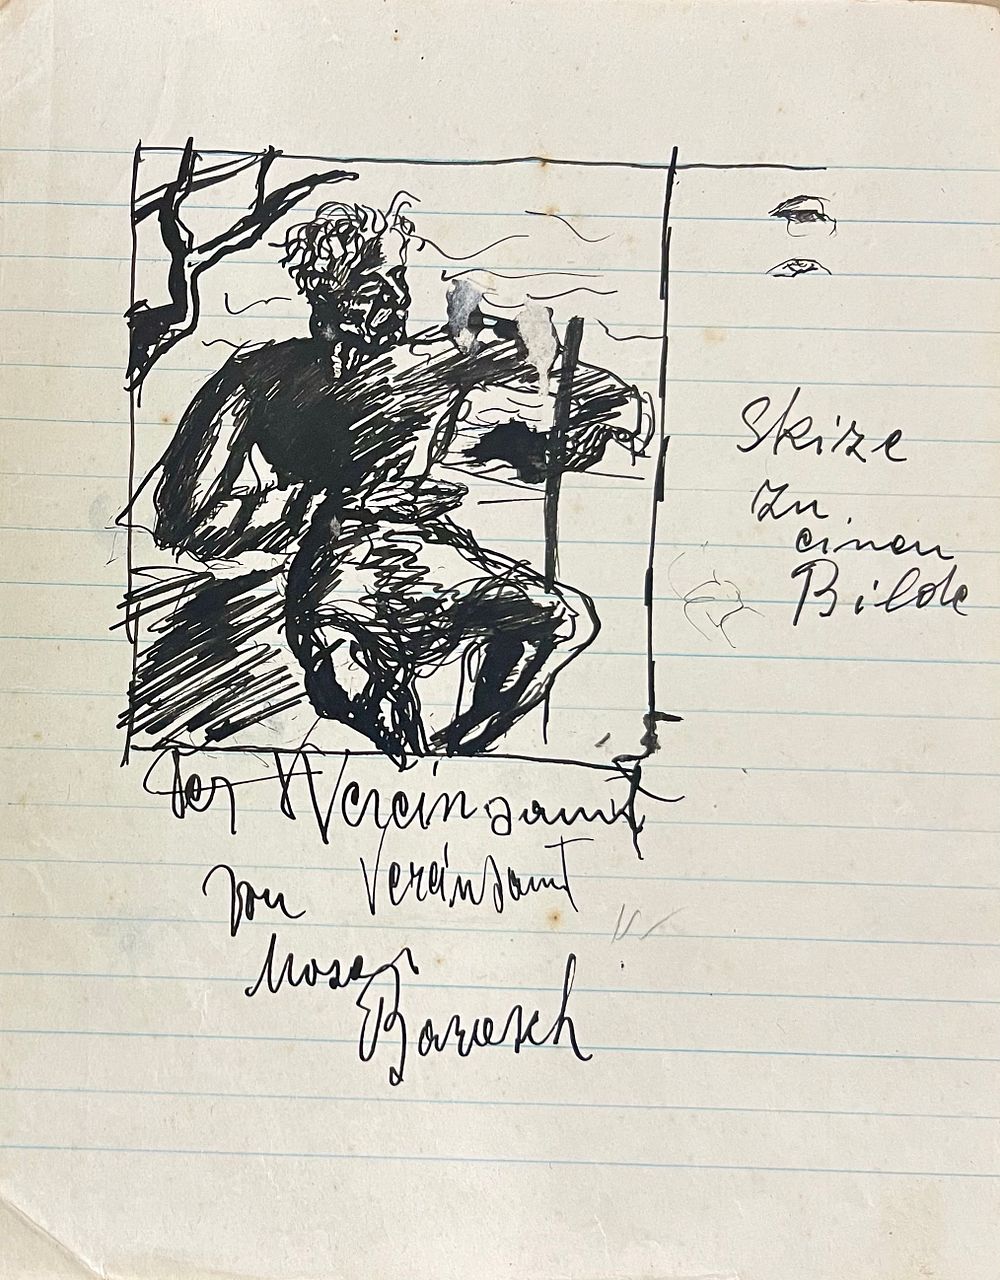 Skize
zu
einen
Bilde
Der Vereinsamt
von Vereinsamt
Mose
Barasch